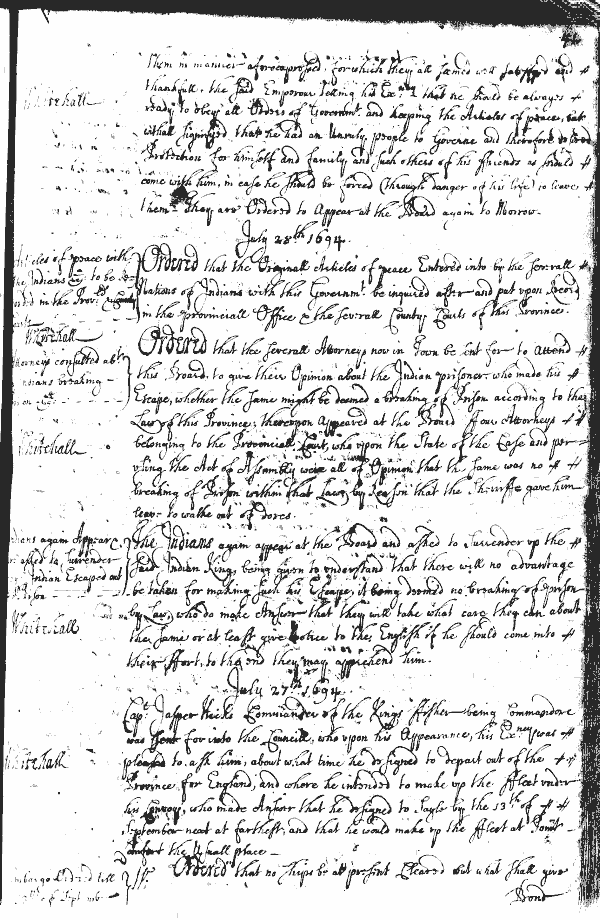 them in manner aforeexpressed, for which they all seemed well satisfyed and
thankfull, the said Emperour telling his Ex:ncy that he should be always
Whitehall
ready to obey all Orders of Governmt. and keeping the Articles of peace, but
withall signifyed that he had an Unruly people to Governe and therefore
Protection for himself and family, and such others of his friends as should
come with him, in case he should be forced (through danger of his life) to leave
them. They are Ordered to Appear at the Board again to Morrow.
July 28th 1694.
Articles of peace with
the Indians to be
in the Prov:
Ordered that the Originall Articles of peace Entered into by the severall
Nations of Indians with this Governmt. be inquired after and put upon Record
in the provinciall Office & the severall County Courts of this Province.
Whitehall
Attorneys consulted abt.
Indians breaking
Ordered that the severall Attorneys now in Town be sent for to attend
this Board, to give their Opinion about the Indian prisoner who made his
Escape, whether the same might be deemed a breaking of Prison according to the
Law of this Province, thereupon Appeared at the Board four Attorneys
Whitehall
belonging to the Provinciall Court, who upon the State of the Case and per-
using the Act of Assembly were all of Opinion that the same was no
breaking of Prison within that Law, by reason that the Sherriffe gave him
leave to walke out of dores.
Indians again Appear
asked to Surrender
Indian Escaped out
Prison
The Indians again appear at the Board and asked to Surrender up the
said Indian King, being given to understand that there will no advantage
be taken for making such his Escape, it being deemed no breaking of prison
Whitehall
by Law, who do make Answer that they will take what care they can about
the same or at least give Notice to the English if he should come into
their ffort, to the end they may apprehend him.
July 27th 1694.
Capt. Jasper Hicks Commander of the Kings ffisher being Commandore
was sent for into the Councill, who upon his Appearance, his Ex:ncy was
Whitehall
pleased to ask him, about what time he designed to depart out of the
Province for England, and where he intended to make up the ffleet under
his Convoy, who made Answer that he designed to Sayle by the 13th of
September next at farthest, and that he would make up the ffleet at Point
Comfort the Usuall place
Embargo Ordred till
of Sept
Ordered that no Ships be at present Cleared but what shall give
Bond